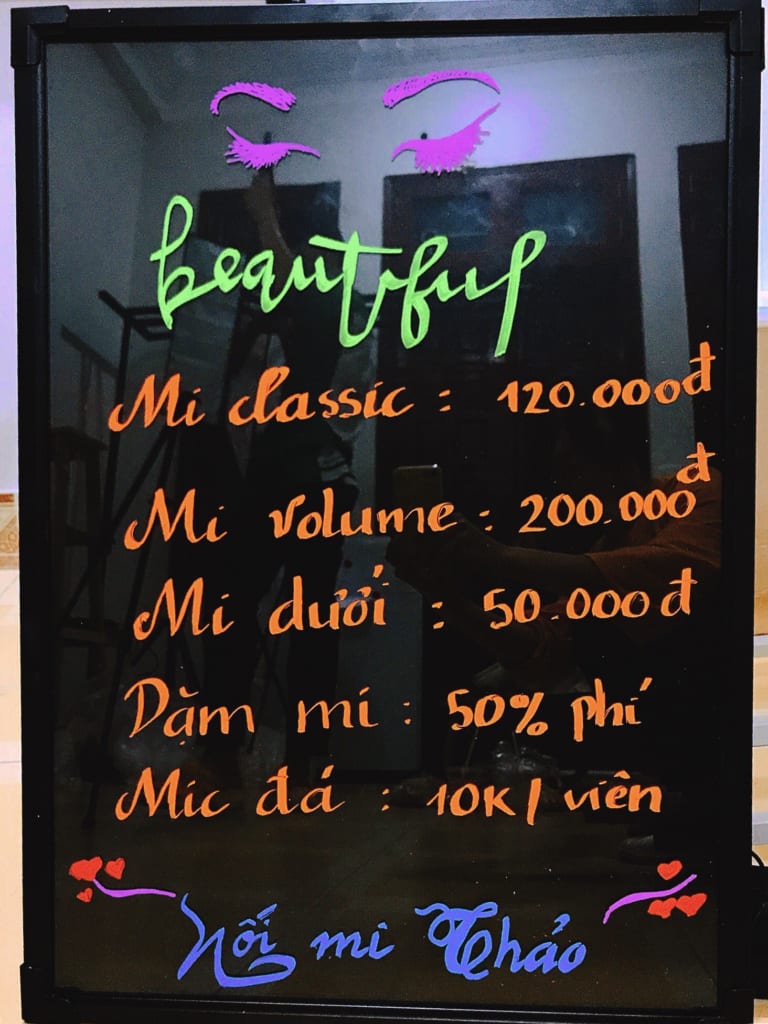 beautiful
Mi classic : 120.000đ
Mi volume : 200.000đ
Mi dưới : 50.000đ
Dặm mi : 50% phí
Mic đá : 10K/viên
Nối mi Thảo